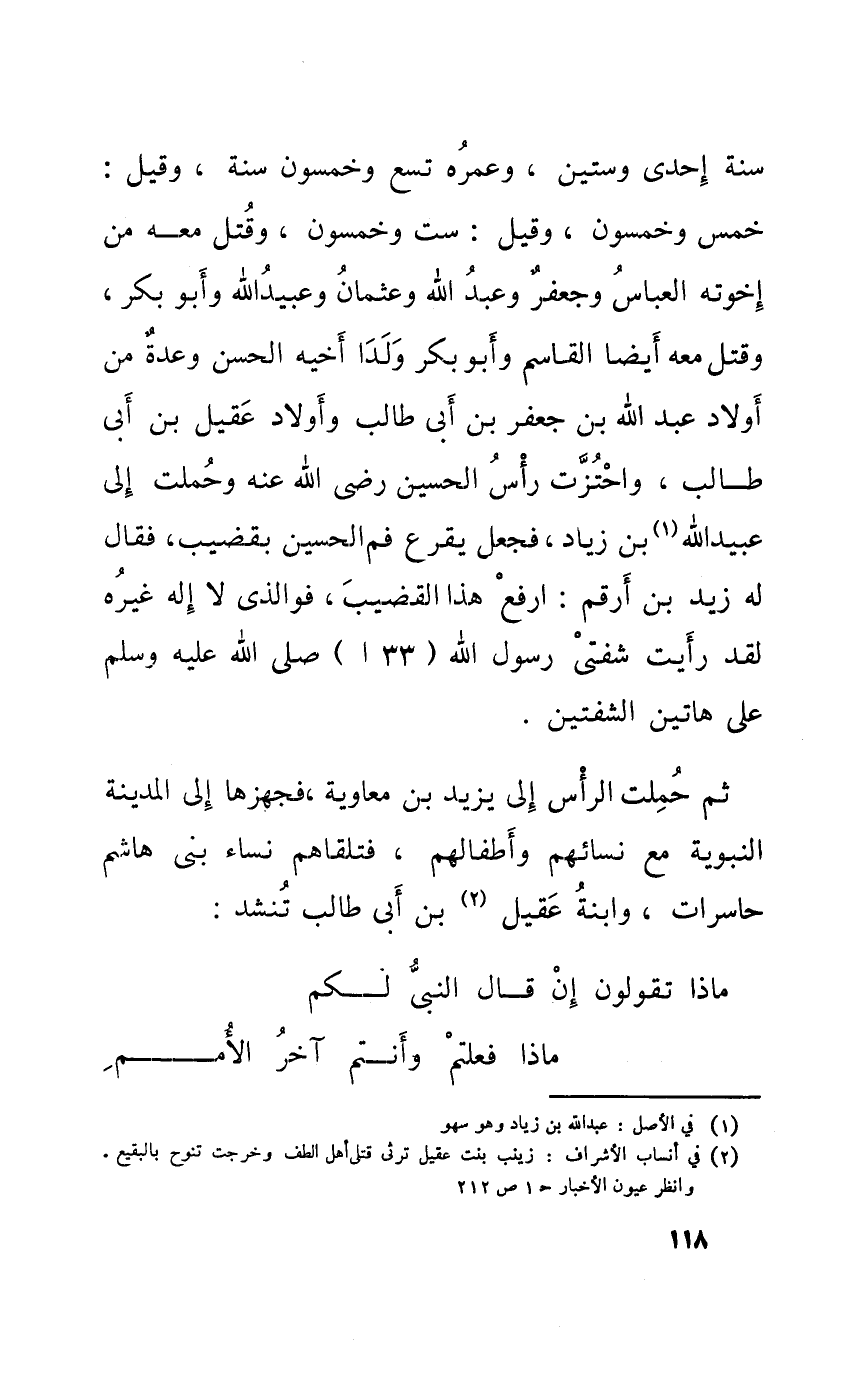 سنة إحدى وستين ، وعمرُه تسع وخمسون سنة ، وقيل :
خمس وخمسون ، وقيل : ست وخمسون ، وقُتل معـه من
إخوته العباسُ وجعفرٌ وعبدُ الله وعثمانُ وعبيدُالله وأبو بكر ،
وقتل معه أيضا القاسم وأبو بكر وَلَدَا أخيه الحسن وعدةٌ من
أولاد عبد الله بن جعفر بن أبى طالب وأولاد عَقيل بن أبى
طـالب ، واحْتُزَّت رأْسُ الحسين رضى الله عنه وحُملت إلى
عبيدالله(١) بن زياد ، فجعل يقرع فم الحسين بقضيب، فقال
له زيد بن أرقم : ارفعْ هذا القضيبَ ، فوالذى لا إله غيرُه
لقد رأيت شفتىْ رسول الله ( ٣٣ ا ) صلى الله عليه وسلم
على هاتين الشفتين .
ثم حُمِلت الرأْس إلى يزيد بن معاوية ،فجهزها إلى المدينة
النبوية مع نسائهم وأطفالهم ، فتلقاهم نساء بنى هاشم
حاسرات ، وابنةُ عَقيل (٢) بن أبى طالب تُنشد :
ماذا تقولون إنْ قـال النبىُّ لـكم
ماذا فعلتمْ وأنـتم آخرُ الأُمـــمِ
(١) في الأصل : عبدالله بن زياد وهو سهو
(٢) في أنساب الأشراف : زينب بنت عقيل ترثى قتلى أهل الطف وخرجت تنوح بالبقيع .
وانظر عيون الأخبار ح ١ ص ٢١٢
١١٨